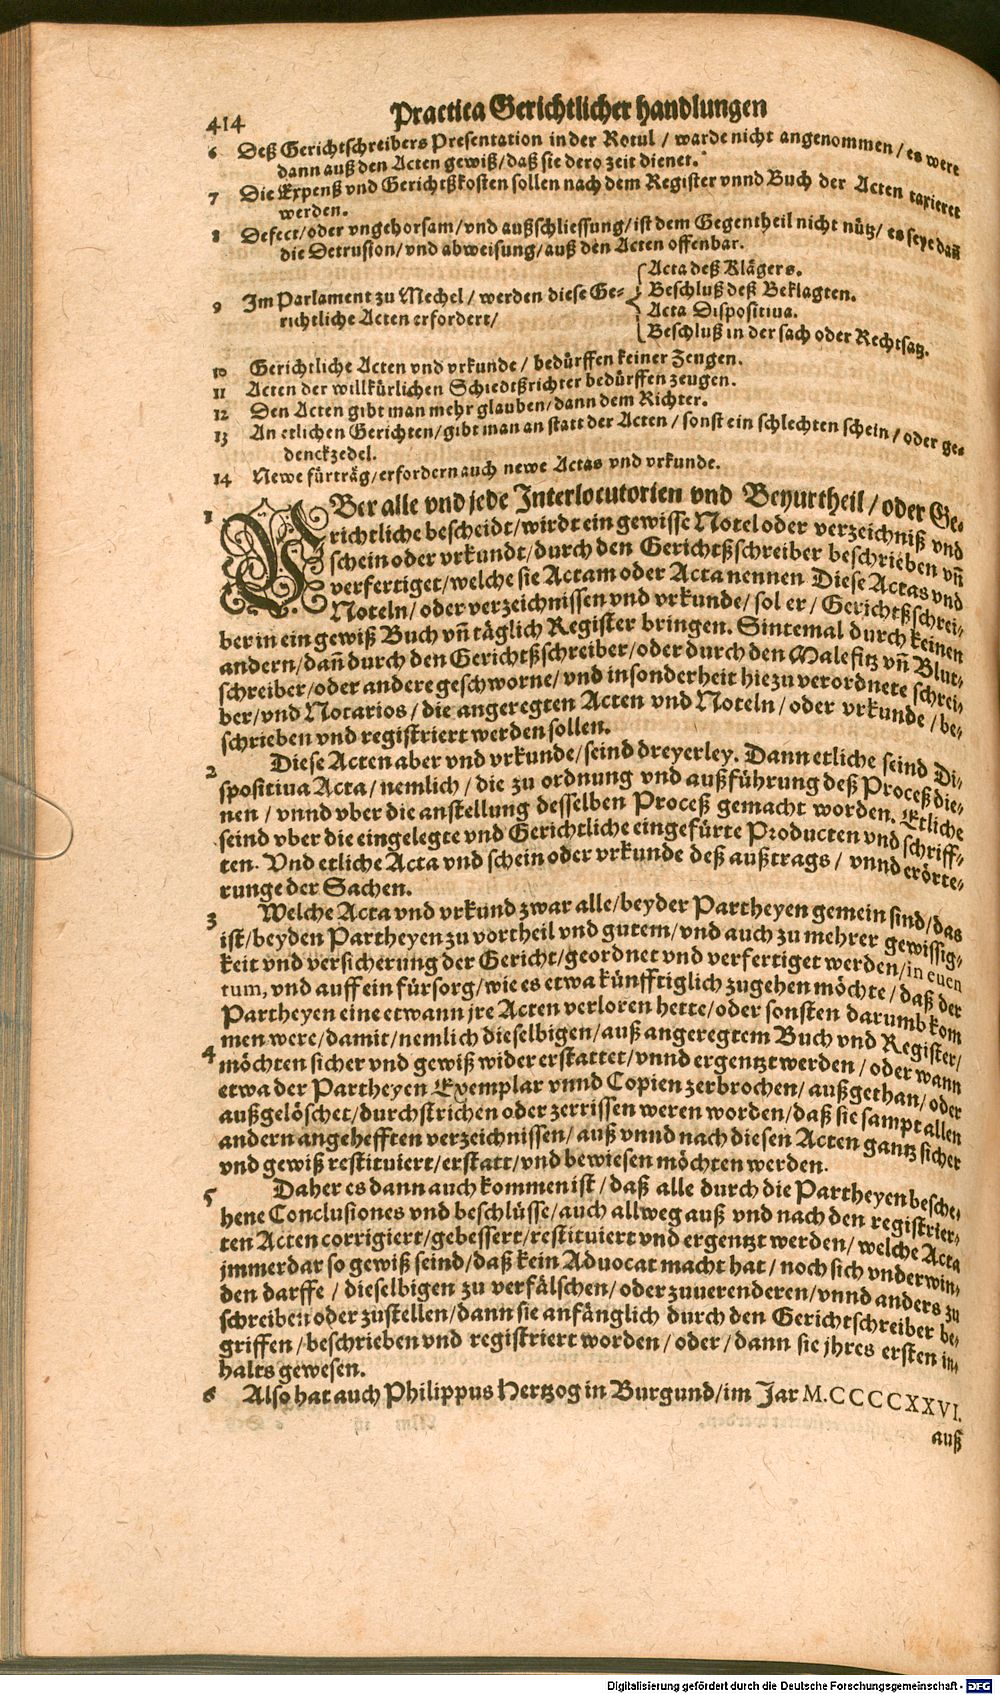 414
Practica Gerichtlicher handlungen
6 Deß Gerichtschreibers Presentation in der Rotul / warde nicht angenommen / es were
dann auß den Acten gewiß / daß sie dero zeit dienet.
7 Die Expenß vnd Gerichtßkosten sollen nach dem Register vnnd Buch der Acten taxieret
werden.
8 Defect / oder vngehorsam / vnd außschliessung / ist dem Gegentheil nicht nütz / es seye dañ
die Detrusion / vnd abweisung / auß den Acten offenbar.
9 Im Parlament zu Mechel / werden diese Ge-
richtliche Acten erfordert /
Acta deß Klägers.
Beschluß deß Beklagten.
Acta Dispositiua.
Beschluß in der sach oder Rechtsatz.
10 Gerichtliche Acten vnd vrkunde / bedürffen keiner Zeugen.
11 Acten der willkürlichen Schiedtßrichter bedürffen zeugen.
12 Den Acten gibt man mehr glauben / dann dem Richter.
13 An etlichen Gerichten / gibt man an statt der Acten / sonst ein schlechten schein / oder ge-
denckzedel.
14 Newe fürträg / erfordern auch newe Actas vnd vrkunde.
1 VBer alle vnd jede Interlocutorien vnd Beyurtheil / oder Ge-
richtliche bescheidt / wirdt ein gewisse Notel oder verzeichniß vnd
schein oder vrkundt / durch den Gerichtßschreiber beschrieben vñ
verfertiget / welche sie Actam oder Acta nennen Diese Actas vnd
Noteln / oder verzeichnissen vnd vrkunde / sol er / Gerichtßschrei-
ber in ein gewiß Buch vñ täglich Register bringen. Sintemal durch keinen
andern / dañ durch den Gerichtßschreiber / oder durch den Malefitz vñ Blut-
schreiber / oder andere geschworne / vnd insonderheit hiezu verordnete schrei-
ber / vnd Notarios / die angeregten Acten vnd Noteln / oder vrkunde / be-
schrieben vnd registriert werden sollen.
2 Diese Acten aber vnd vrkunde / seind dreyerley. Dann etliche seind Di-
spositiua Acta / nemlich / die zu ordnung vnd außführung deß Proceß die-
nen / vnnd vber die anstellung desselben Proceß gemacht worden. Etliche
seind vber die eingelegte vnd Gerichtliche eingefürte Producten vnd schriff-
ten. Vnd etliche Acta vnd schein oder vrkunde deß außtrags / vnnd erörte-
runge der Sachen.
3 Welche Acta vnd vrkund zwar alle / beyder Partheyen gemein sind / das
ist / beyden Partheyen zu vortheil vnd gutem / vnd auch zu mehrer gewissig-
keit vnd versicherung der Gericht / geordnet vnd verfertiget werden / in euen
tum, vnd auff ein fürsorg / wie es etwa künfftiglich zugehen möchte / daß der
Partheyen eine etwann jre Acten verloren hette / oder sonsten darumb kom
men were / damit / nemlich dieselbigen / auß angeregtem Buch vnd Register /
4 möchten sicher vnd gewiß wider erstattet / vnnd ergentzt werden / oder wann
etwa der Partheyen Exemplar vnnd Copien zerbrochen / außgethan / oder
außgelöschet / durchstrichen oder zerrissen weren worden / daß sie sampt allen
andern angehefften verzeichnissen / auß vnnd nach diesen Acten gantz sicher
vnd gewiß restituiert / erstatt / vnd bewiesen möchten werden.
5 Daher es dann auch kommen ist / daß alle durch die Partheyen besche-
hene Conclusiones vnd beschlüsse / auch allweg auß vnd nach den registrier-
ten Acten corrigiert / gebessert / restituiert vnd ergentzt werden / welche Acta
jmmerdar so gewiß seind / daß kein Aduocat macht hat / noch sich vnderwin-
den darffe / dieselbigen zu verfälschen / oder zuuerenderen / vnnd anders zu
schreiben oder zustellen / dann sie anfänglich durch den Gerichtschreiber be-
griffen / beschrieben vnd registriert worden / oder / dann sie jhres ersten in-
halts gewesen.
6 Also hat auch Philippus Hertzog in Burgund / im Jar M.CCCCXXVI.
auß
Digitalisierung gefördert durch die Deutsche Forschungsgemeinschaft - DFG